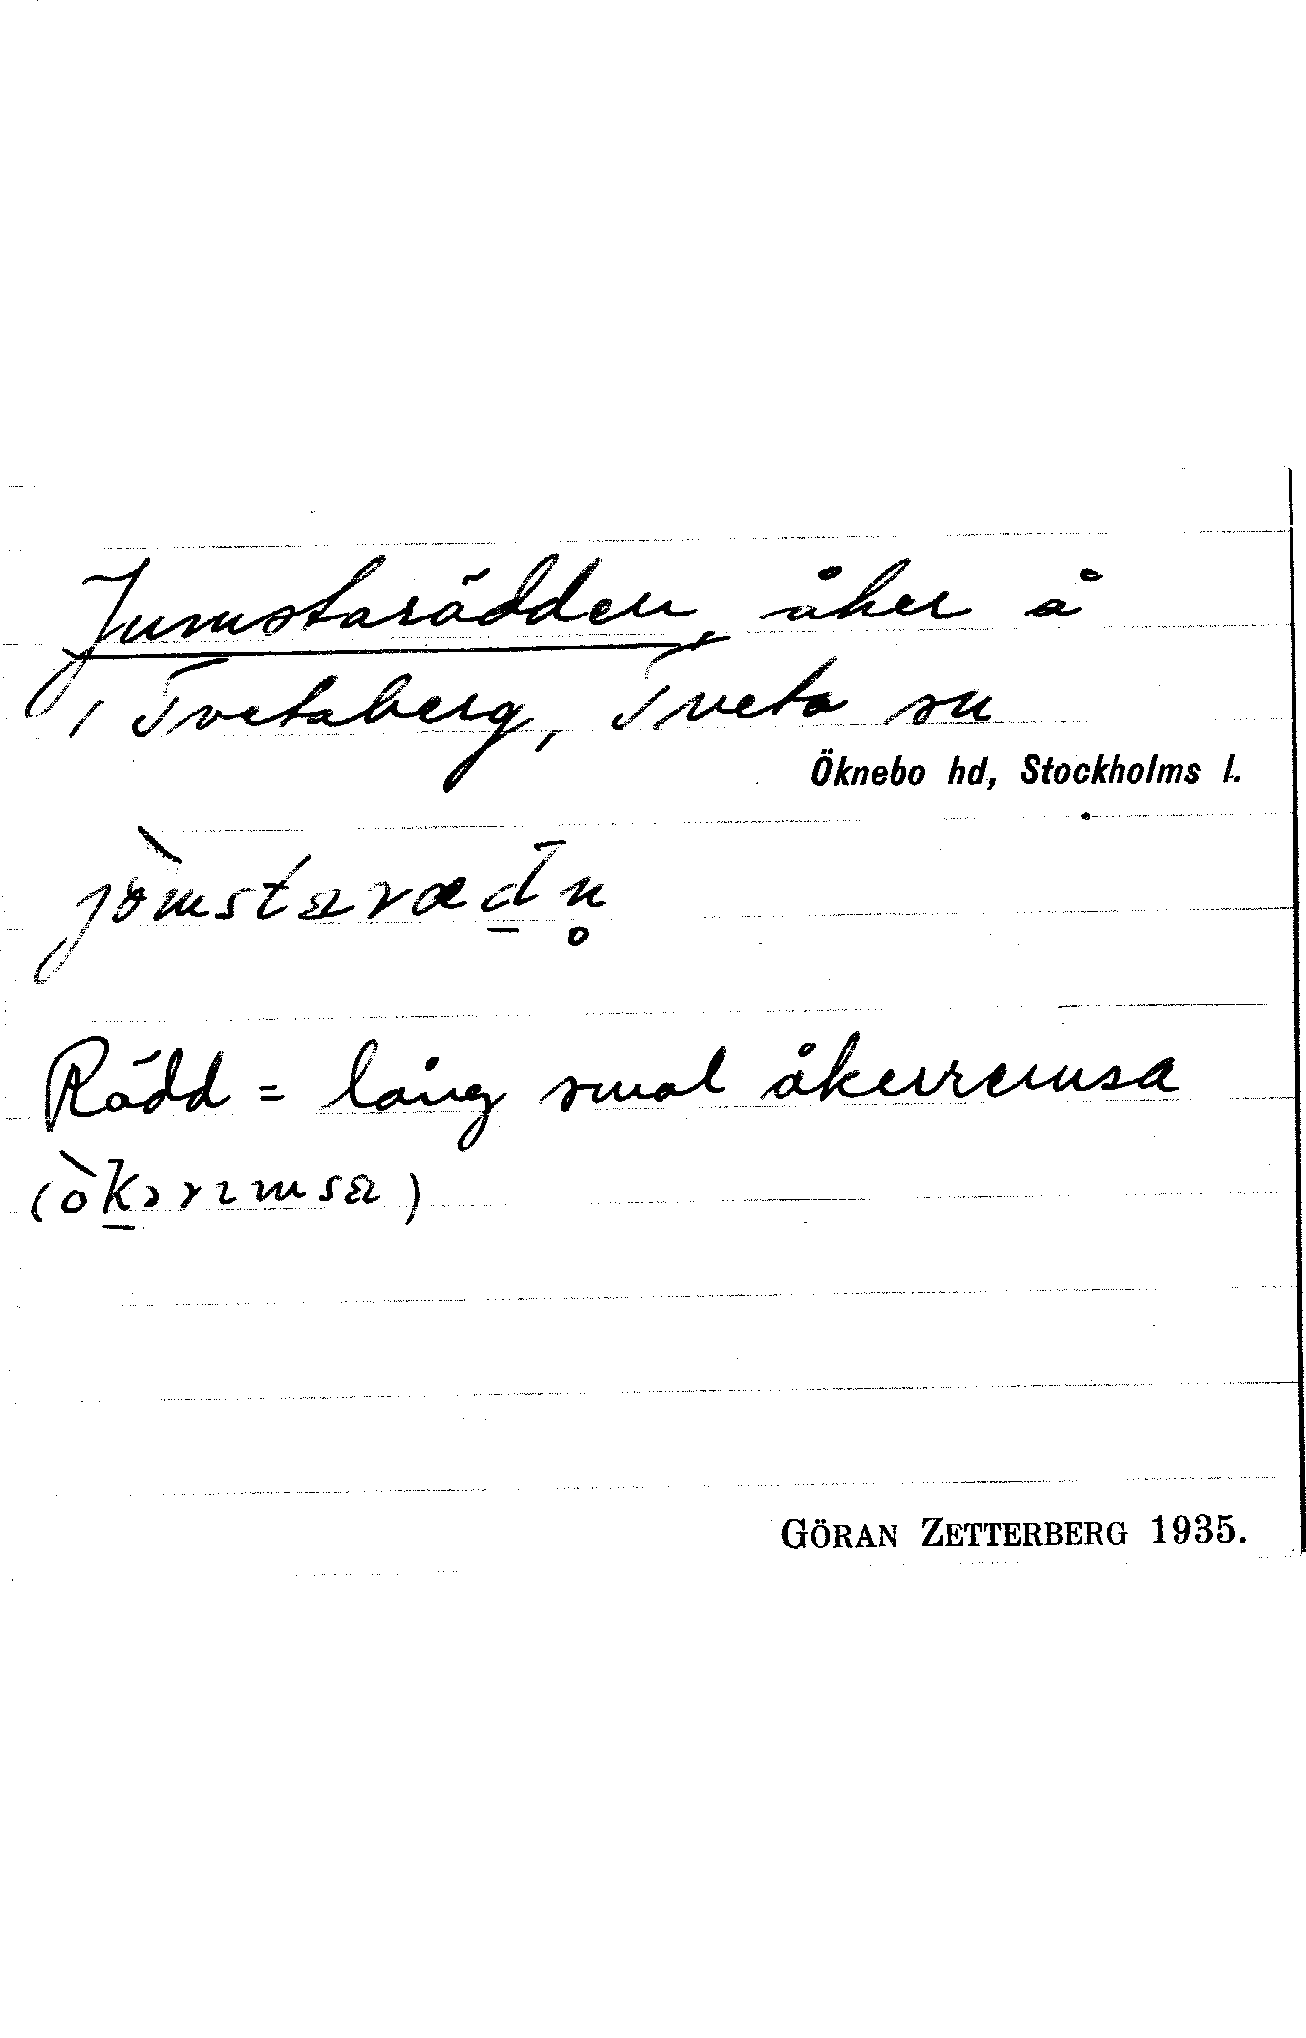 Jumstarädden, åker å
/ Tvetaberg, Tveta sn
Öknebo hd, Stockholms l.
jòmstaræd̲n̥
Rädd = lång smal åkerremsa
(òk̲ərımsa)
GÖRAN ZETTERBERG 1935.